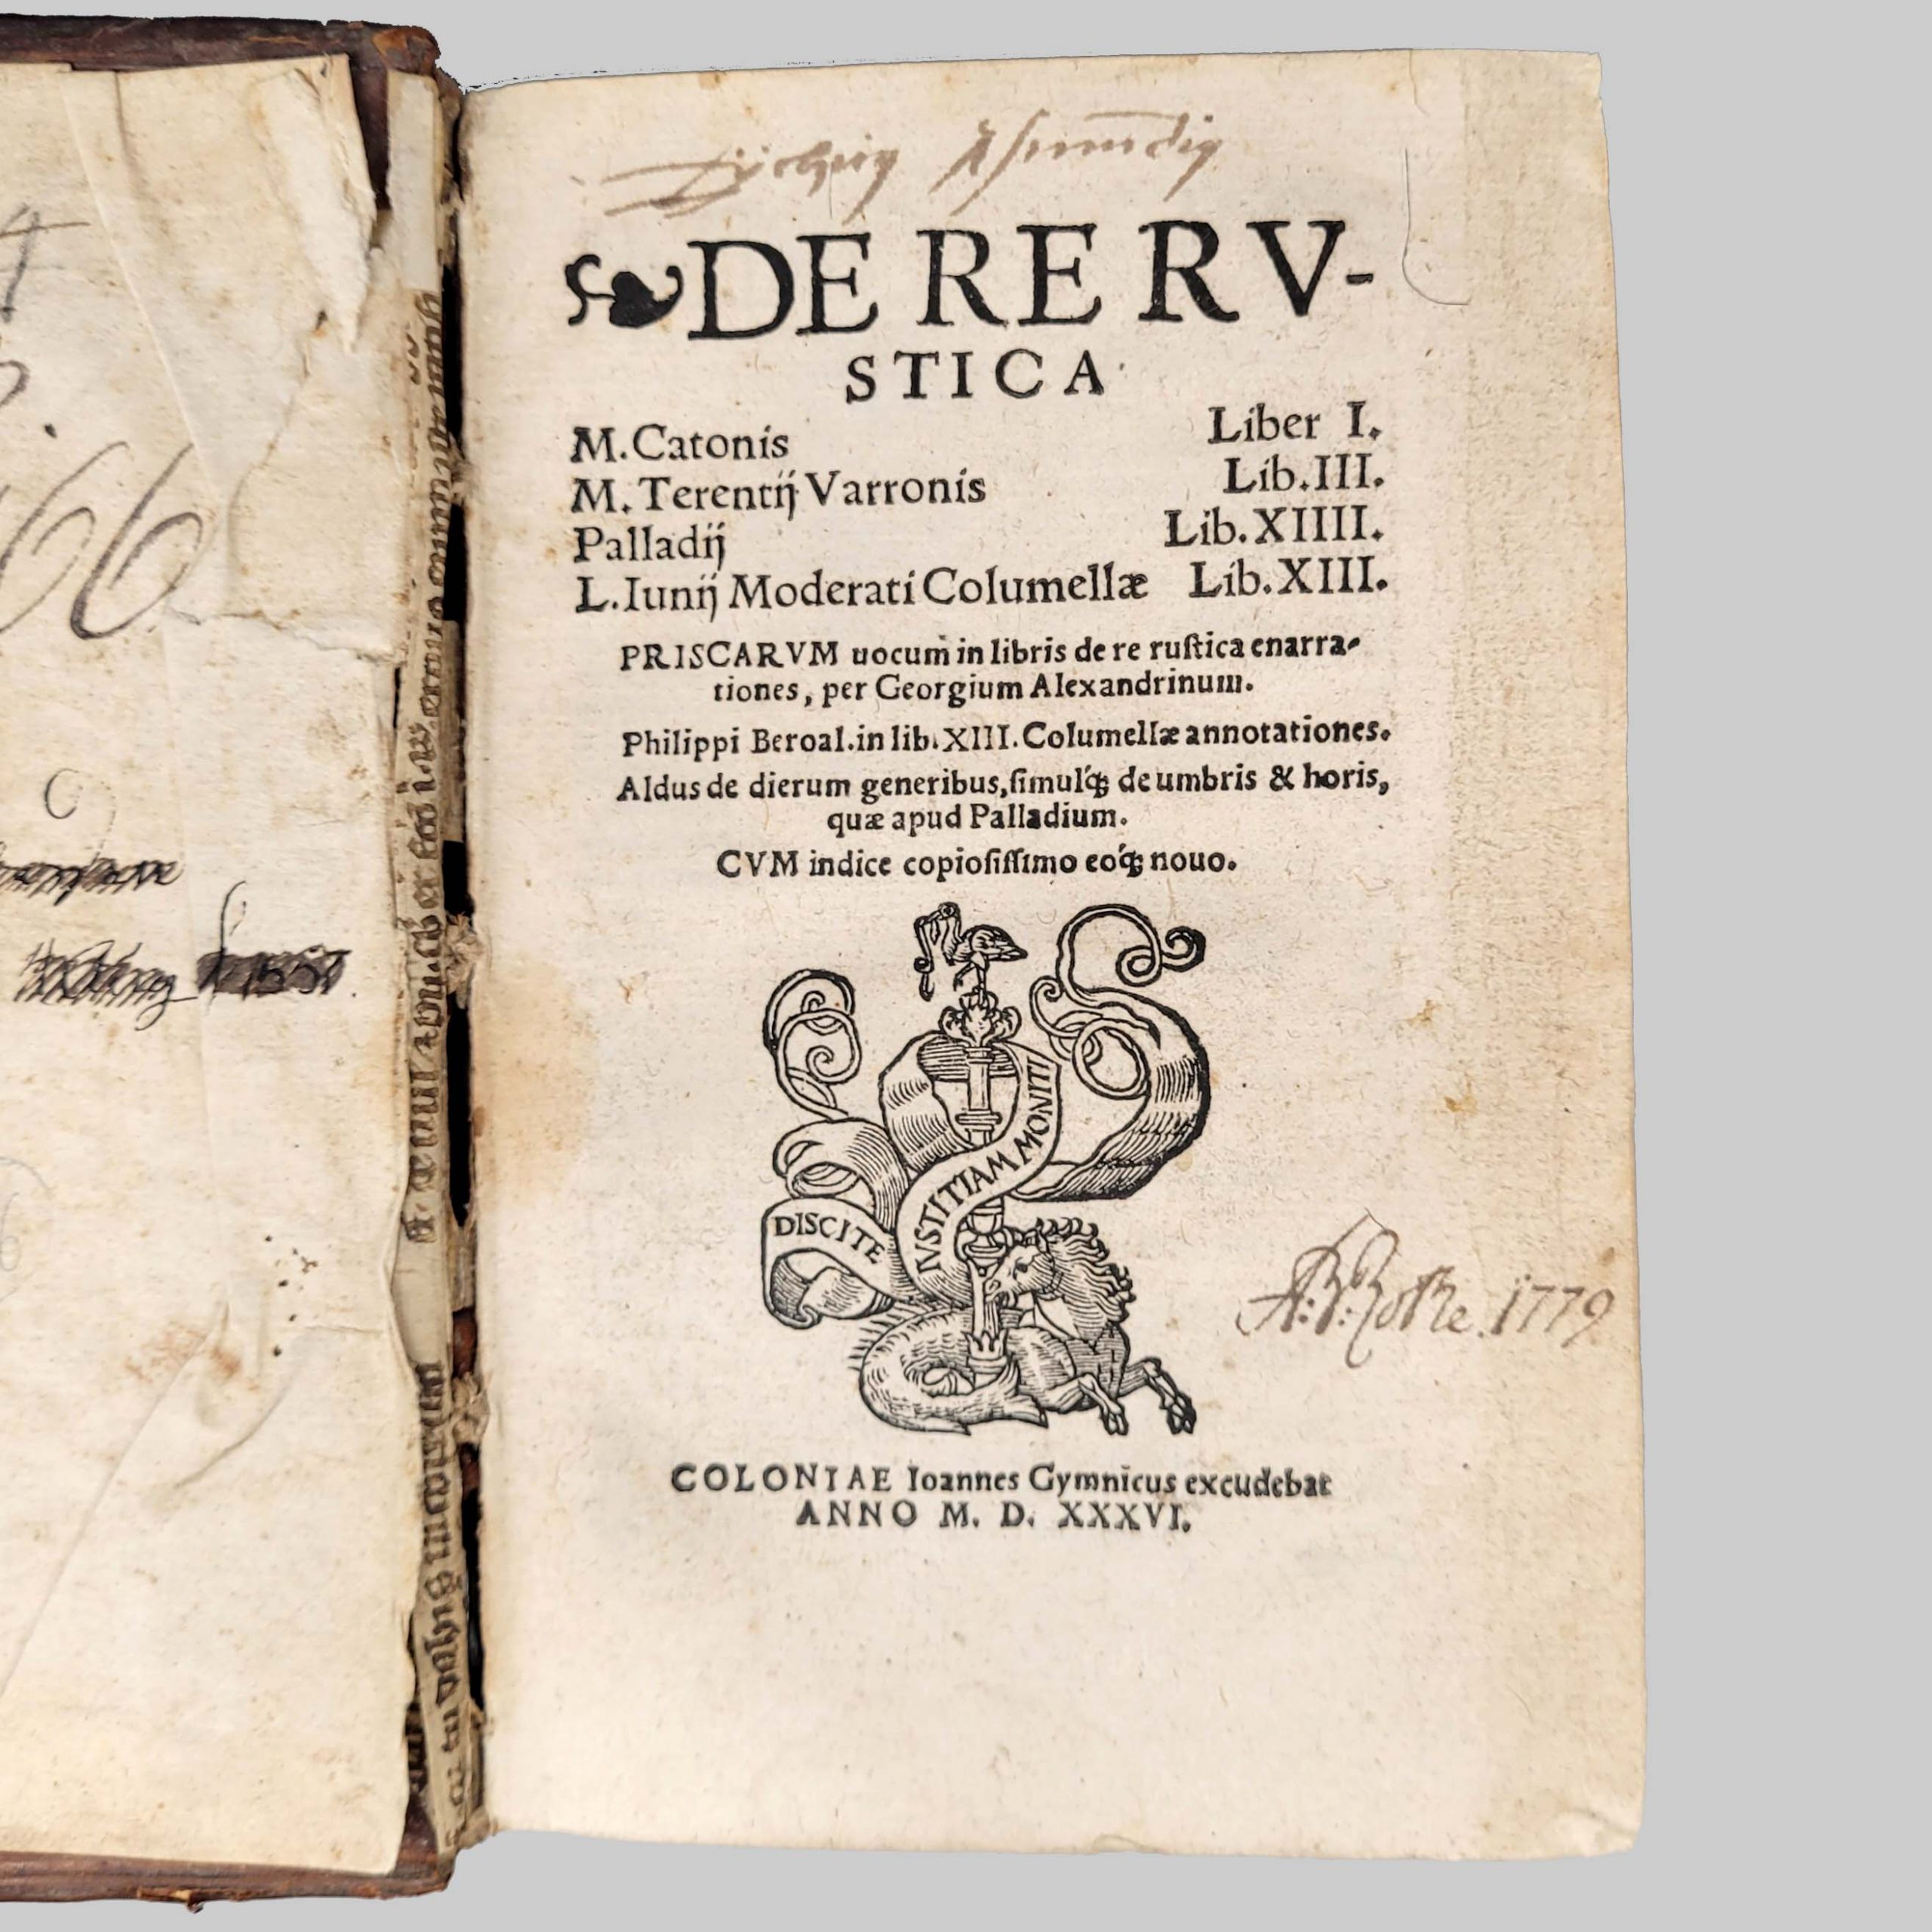 66
❧DE RE RV-
STICA
M. Catonis Liber I.
M. Terentij Varronis Lib. III.
Palladij Lib. XIIII.
L. Iunij Moderati Columellæ Lib. XIII.
PRISCARVM uocum in libris de re ruſtica enarra-
tiones, per Georgium Alexandrinum.
Philippi Beroal. in lib. XIII. Columellæ annotationes.
Aldus de dierum generibus, ſimulq́; de umbris & horis,
quæ apud Palladium.
CVM indice copioſiſſimo eoq́; nouo.
DISCITE IVSTITIAM MONITI
A: B: Rothe. 1779
COLONIAE Ioannes Gymnicus excudebat
ANNO M. D. XXXVI.